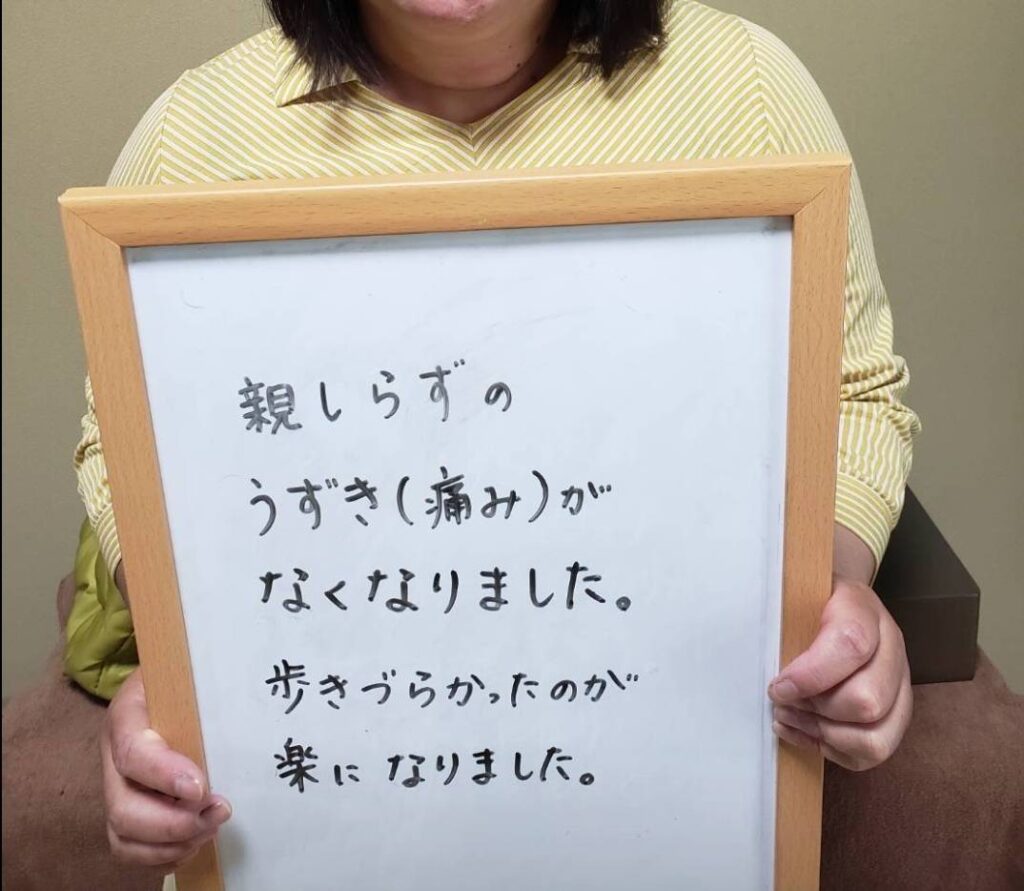 親しらずの
うずき(痛み)が
なくなりました。
歩きづらかったのが
楽になりました。